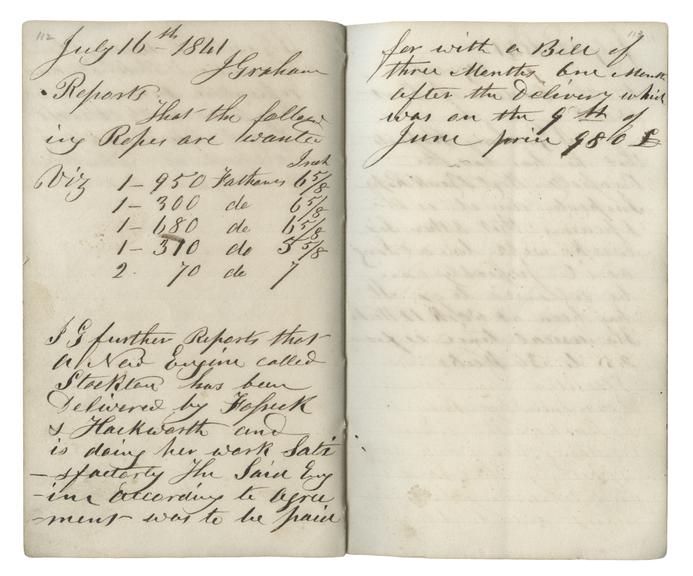 112
July 16th 1841
J Graham
Reports
That the follow
ing Ropes are wanted
Inch
Viz 1 - 950 Fathoms 6 5/8
1 - 300 do 6 5/8
1 - 680 do 6 5/8
1 - 310 do 5 5/8
2 . 70 do 7
J G further Reports that
a New Engine called
Stockton has been
Delivered by Fossick
& Hackworth and
is doing her work Satis
-factorly The Said Eng
-ine according to agree
-ment was to be paid
113
for with a Bill of
three Months One Month
after the Delivery which
was on the 9th of
June price 980 £